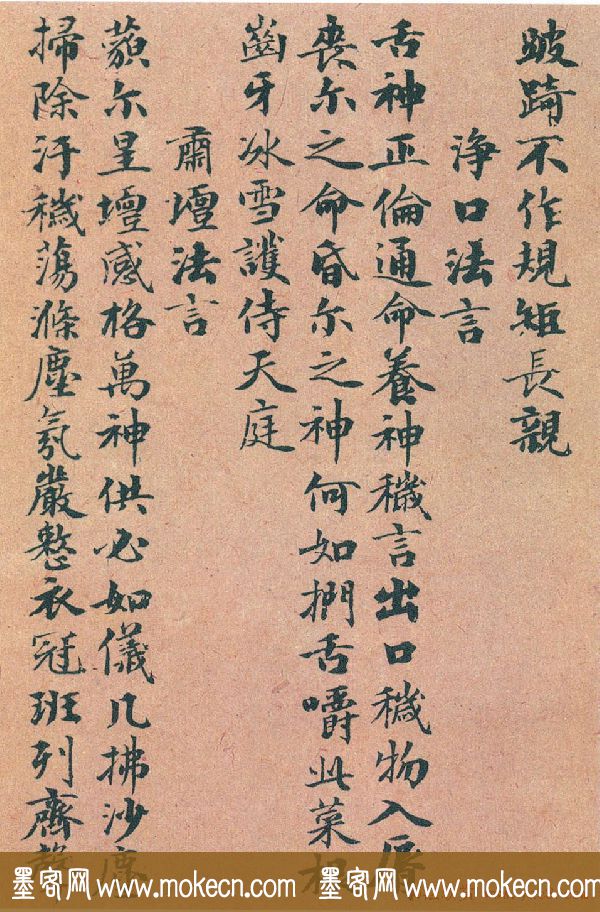 跛踦不作規矩長親
浄口法言
舌神正倫通命養神穢言出口穢物入唇
喪尔之命昏尔之神何如捫舌嚼此菜根
齒牙冰雪護侍天庭
肅壇法言
蘋尔呈壇感格萬神供必如儀几拂沙塵
掃除汙穢蕩滌塵氛嚴整衣冠班列齊
墨客网 www.mokecn.com 墨客网 www.mokecn.com